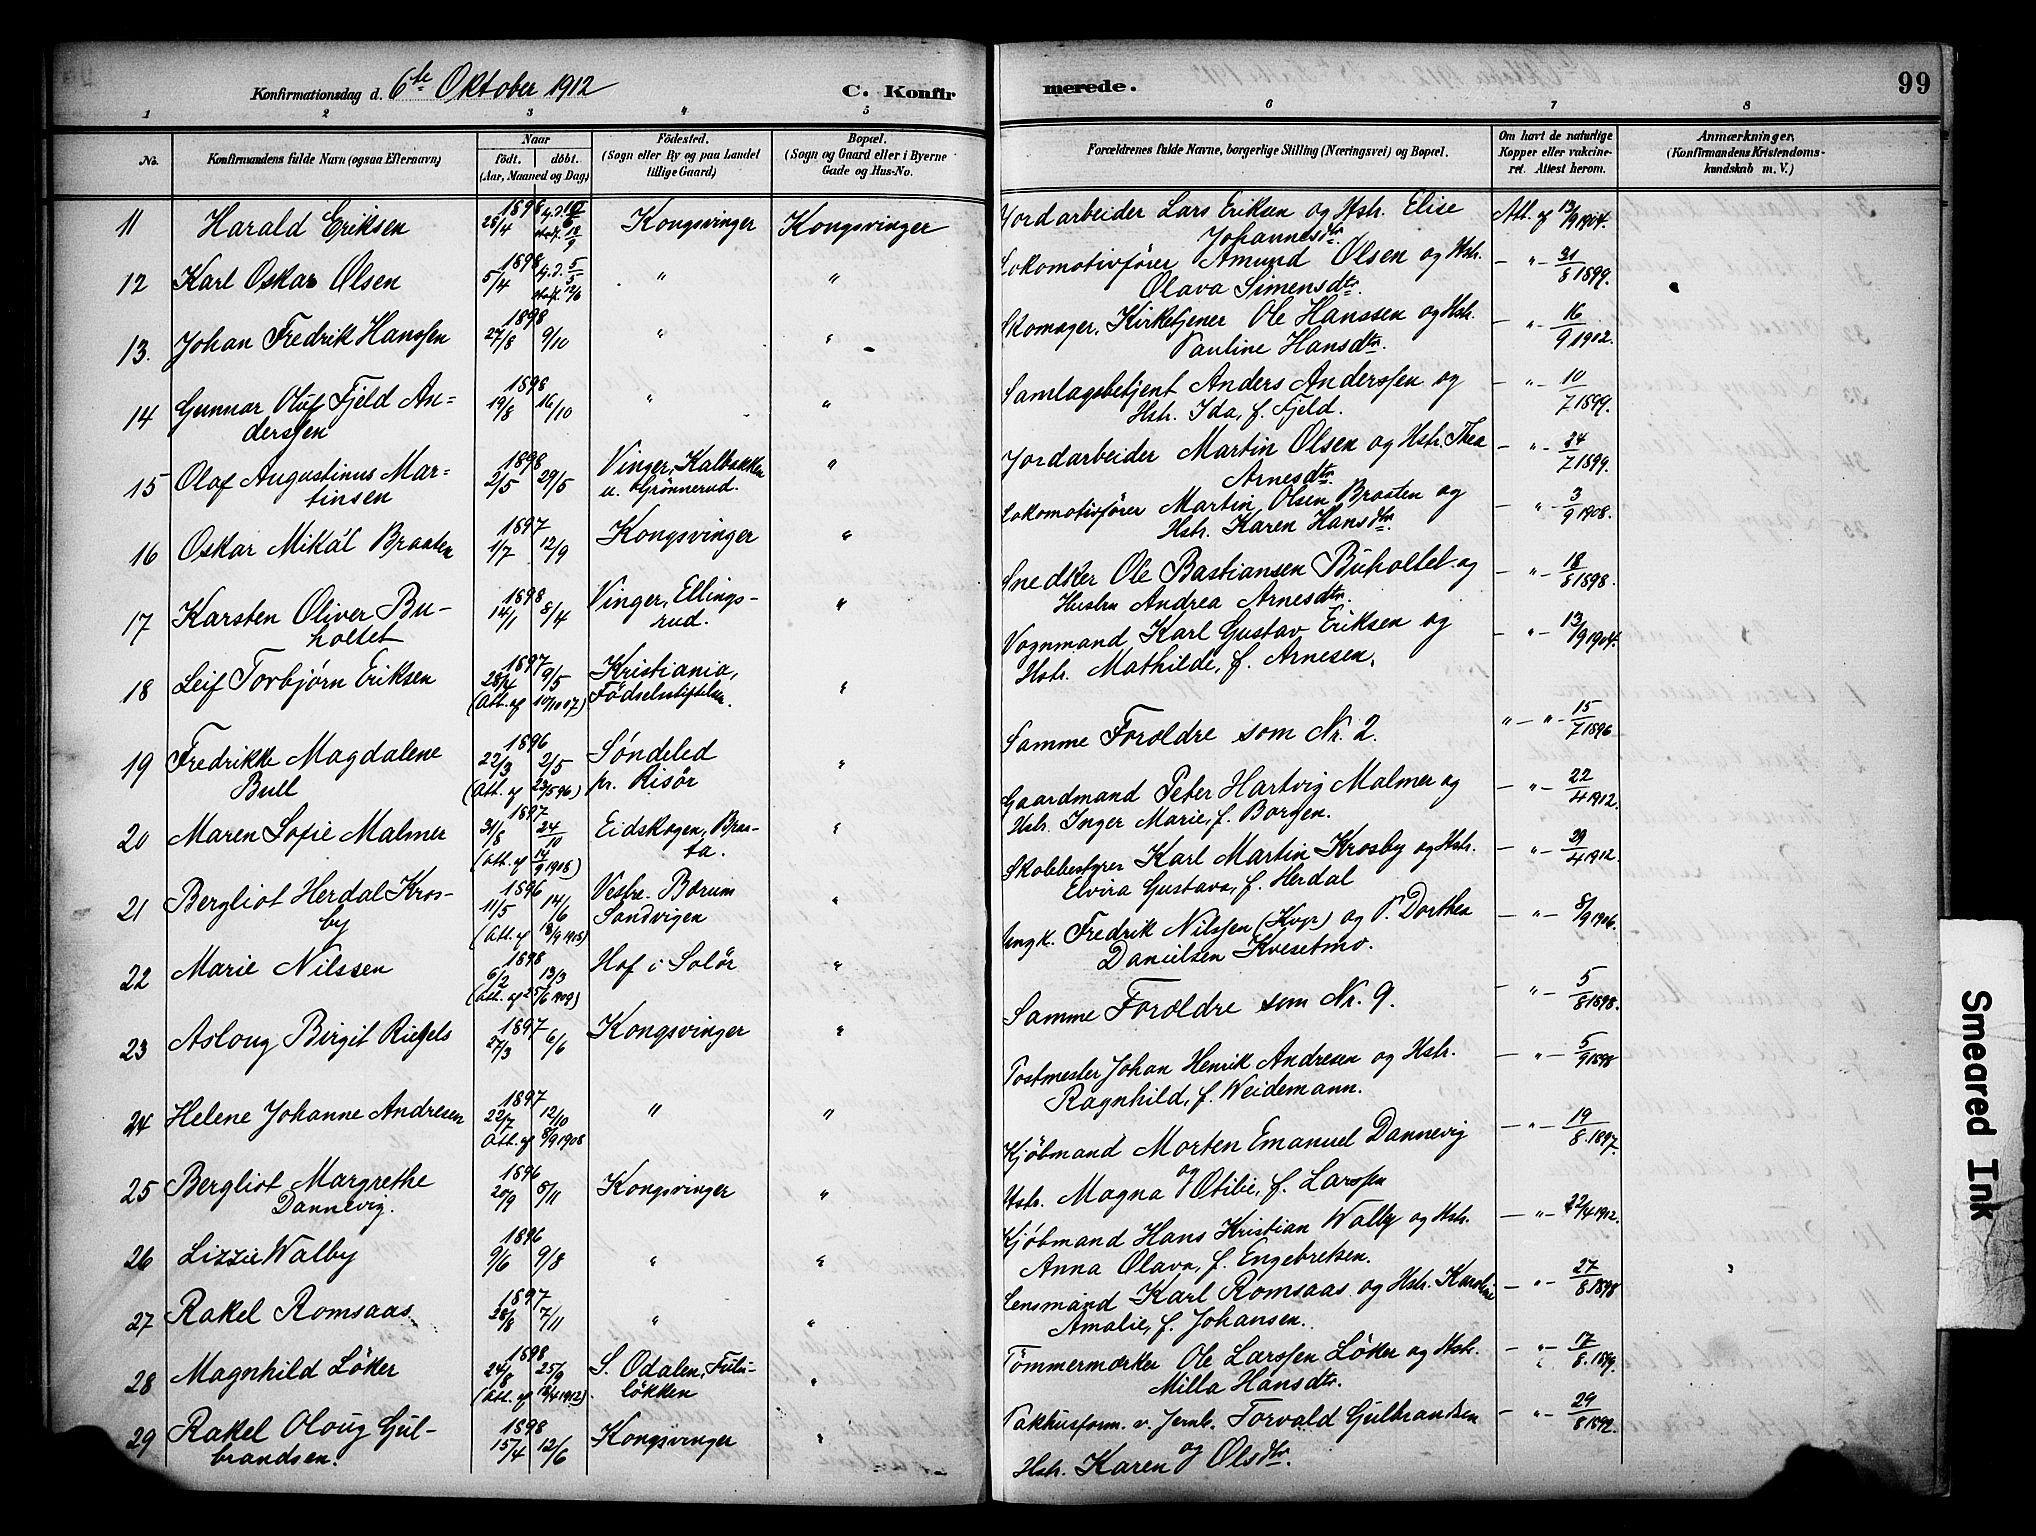 Konfirmationsdag d. 6te Oktober 1912 C. Konfir
1 2 3 4 5
No.
Konfirmandens fulde Navn (ogsaa Efternavn)
Naar
født. døbt.
(Aar, Maaned og Dag)
Fødested.
(Sogn eller By og paa Landet
tillige Gaard)
Bopæl.
(Sogn og Gaard eller i Byerne
Gade og Hus-No.
11 Harald Eriksen 1898 28/4 Kongsvinger Kongsvinger
12 Karl Oskar Olsen 1898 5/4 " "
13. Johan Fredrik Hanssen 1898 27/8 9/10 " "
14 Gunnar Oluf Fjeld An=
derssen 1898 19/8 16/10 " "
15 Olaf Augustinus Mar=
tinsen 1898 2/5 29/5 Vinger, Kalbakken
u. Grønnerud. "
16 Oskar Mikal Braaten 1897 1/7 12/9 Kongsvinger "
17 Karsten Oliver Bu-
holtet 1898 14/1 8/4 Vinger, Ellings-
rud. "
18 Leif Torbjørn Eriksen 1897 28/4 9/5 Kristiania,
(Att. af 10/10 07) Fødselsstiftelsen. "
19 Fredrikke Magdalene
Bull 1896 22/3 2/5 Søndeled
(Att. af 23/5 96) pr. Risør "
20 Maren Sofie Malmer 1897 31/8 24/10 Eidskogen, Braa-
ta. (Att. af 14/9 1908) "
21 Bergliot Herdal Kros-
by 1896 11/5 14/6 Vestre Bærum
(Att. af 18/9 1908) Sandvigen "
22 Marie Nilssen 1898 6/2 13/3 Hof i Solør "
(Att. af 25/6 1909)
23 Aslaug Birgit Riegels 1897 27/3 6/6 Kongsvinger "
24 Helene Johanne Andresen 1897 22/7 12/10 " "
Att. af 8/9 1908
25 Bergliot Margrethe
Dannevig. 1896 20/9 8/11 Kongsvinger "
26 Lizzie Walby 1896 9/6 9/8 " "
27 Rakel Romsaas 1897 28/8 7/11 " "
28 Magnhild Løker 1898 24/8 25/9 S. Odalen,
løkken "
(Att. af 18/4 1912)
29 Rakel Olaug Gul-
brandsen. 1898 15/4 12/6 Kongsvinger "
merede. 99
6 7 8
Forældrenes fulde Navne, borgerlige Stilling (Næringsvei) og Bopæl.
Om havt de naturlige
Kopper eller vakcine-
ret. Attest herom.
Anmærkninger.
(Konfirmandens Kristendoms-
kundskab m. V.)
Jordarbeider Lars Eriksen og Hstr. Elise
Johannesdtr. Att. af 13/9 1904.
Lokomotivfører Amund Olsen og Hstr.
Olava Simensdtr. - " - 31/8 1899.
Skomager, Kirketjener Ole Hanssen og Hstr.
Pauline Hansdtr. - " - 16/9 1912.
Samlagsbetjent Anders Anderssen og
Hstr. Ida, f. Fjeld. - " - 10/7 1899.
Jordarbeider Martin Olsen og Hstr. Thea
Arnesdtr. - " - 24/7 1899.
Lokomotivfører Martin Olsen Braaten og
Hstr. Karen Hansdtr. - " - 3/9 1908.
Snedker Ole Bastiansen Buholtet og
Hustru Andrea Arnesdtr. - " - 18/8 1898.
Vognmand Karl Gustav Eriksen og
Hstr. Mathilde, f. Arnesen. - " - 13/9 1904.
Samme Forældre som Nr. 2. " - " - 15/7 1896
Gaardmand Peter Hartvig Malmer og
Hstr. Inger Marie, f. Borgen. - " - 22/4 1912.
Skolebestyrer Karl Martin Krosby og Hstr.
Elvira Gustava, f. Herdal - " - 29/4 1912.
Ungk. Fredrik Nilssen (Kvgr) og P. Dorthea
Danielsen Kvesetmo. - " - 8/9 1906.
Samme Forældre som Nr. 9. - " - 5/8 1898.
Postmester Johan Henrik Andresen og Hstr.
Ragnhild, f. Weidemann. - " - 5/9 1898
Kjøbmand Morten Emanuel Dannevig
og
Hstr. Magna Otilie, f. Larssen - " - 19/8.1897.
Kjøbmand Hans Kristian Walby og Hstr.
Anna Olava, f. Engebretsen. - " - 22/4 1912.
Lensmand Karl Romsaas og Hstr. Karoline
Amalie, f. Johansen. - " - 27/8.1898
Tømmermærker Ole Larssen Løker og Hstr.
Milla Hansdtr. - " - 17/8.1899.
Pakhusform. v. Jernb. Torvald Gulbrandsen
og
Hstr. Karen Olsdtr. - " - 29/8
Smeared Ink